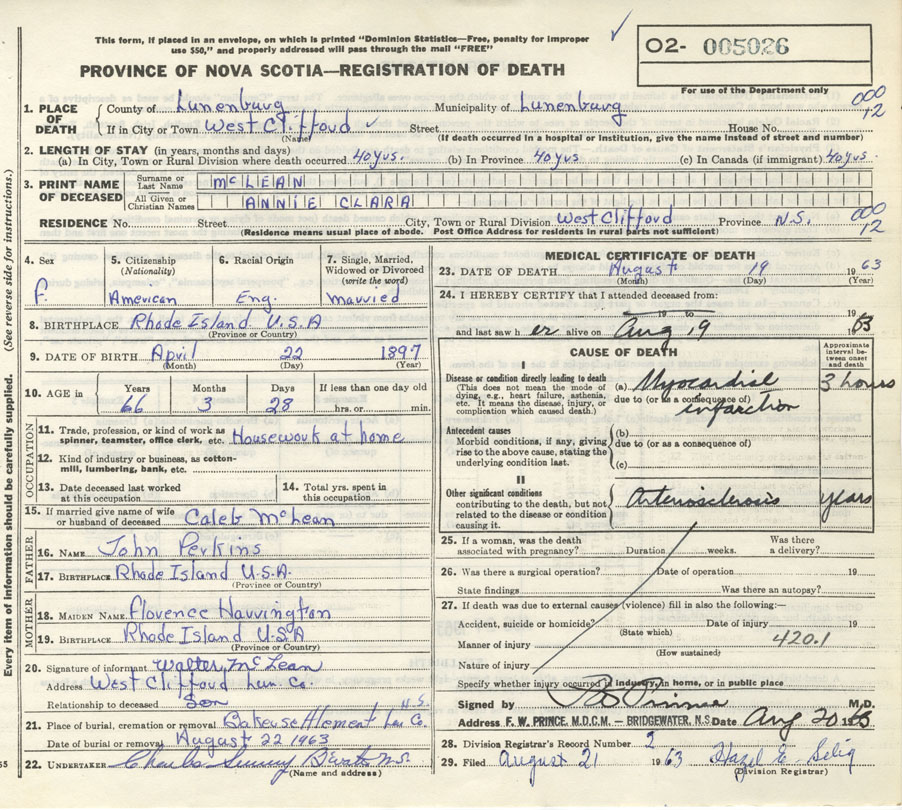 This form, if placed in an envelope, on which is printed "Dominion Statistics—Free, penalty for improper
use $50," and properly addressed will pass through the mail "FREE"
O2- 005026
For use of the Department only
PROVINCE OF NOVA SCOTIA—REGISTRATION OF DEATH
000
12
1. PLACE OF DEATH { County of Lunenburg Municipality of Lunenburg
If in City or Town West Clifford Street House No.
(Name) (If death occurred in a hospital or institution, give the name instead of street and number)
2. LENGTH OF STAY (in years, months and days)
(a) In City, Town or Rural Division where death occurred 40 yrs. (b) In Province 40 yrs (c) In Canada (if immigrant) 40 yrs.
3. PRINT NAME OF DECEASED { Surname or Last Name McLEAN
All Given or Christian Names ANNIE CLARA
RESIDENCE No. Street City, Town or Rural Division West Clifford Province N.S.
000
12
(Residence means usual place of abode. Post Office Address for residents in rural parts not sufficient)
4. Sex 5. Citizenship (Nationality) 6. Racial Origin 7. Single, Married, Widowed or Divorced (write the word)
f. American Eng. married
8. BIRTHPLACE Rhode Island U.S.A
(Province or Country)
9. DATE OF BIRTH April 22 1897
(Month) (Day) (Year)
10. AGE in Years Months Days If less than one day old
66 3 28 hrs. or min.
OCCUPATION
11. Trade, profession, or kind of work as spinner, teamster, office clerk, etc. Housework at home
12. Kind of industry or business, as cotton-mill, lumbering, bank, etc.
13. Date deceased last worked at this occupation
14. Total yrs. spent in this occupation
15. If married give name of wife or husband of deceased Caleb McLean
FATHER
16. NAME John Perkins
17. BIRTHPLACE Rhode Island U.S.A.
(Province or Country)
MOTHER
18. MAIDEN NAME Florence Harrington
19. BIRTHPLACE Rhode Island U.S.A
(Province or Country)
20. Signature of informant Walter McLean
Address West Clifford Lun. Co.
Relationship to deceased Son N.S.
21. Place of burial, cremation or removal Lun Co.
Date of burial or removal August 22 1963
22. UNDERTAKER Charles
(Name and address)
MEDICAL CERTIFICATE OF DEATH
23. DATE OF DEATH August 19 1963
(Month) (Day) (Year)
24. I HEREBY CERTIFY that I attended deceased from:
19 to 19
and last saw her alive on Aug 19 1963
CAUSE OF DEATH
Approximate interval between onset and death
I
Disease or condition directly leading to death
(This does not mean the mode of dying, e.g., heart failure, asthenia, etc. It means the disease, injury, or complication which caused death.)
(a) Myocardial infarction 3 hours
due to (or as a consequence of)
Antecedent causes
Morbid conditions, if any, giving rise to the above cause, stating the underlying condition last.
(b)
due to (or as a consequence of)
(c)
II
Other significant conditions
contributing to the death, but not related to the disease or condition causing it.
Arteriosclerosis years
25. If a woman, was the death associated with pregnancy? Duration weeks. Was there a delivery?
26. Was there a surgical operation? Date of operation 19
State findings Was there an autopsy?
27. If death was due to external causes (violence) fill in also the following:—
Accident, suicide or homicide? Date of injury 19
(State which)
Manner of injury 420.1
(How sustained)
Nature of injury
Specify whether injury occurred in industry, in home, or in public place
Signed by Prince M.D.
Address F. W. PRINCE, M.D.C.M. — BRIDGEWATER, N.S. Date Aug 20 1963
28. Division Registrar's Record Number 2
29. Filed August 21 1963 Hazel E. Selig
(Division Registrar)
Every item of information should be carefully supplied. (See reverse side for instructions.)